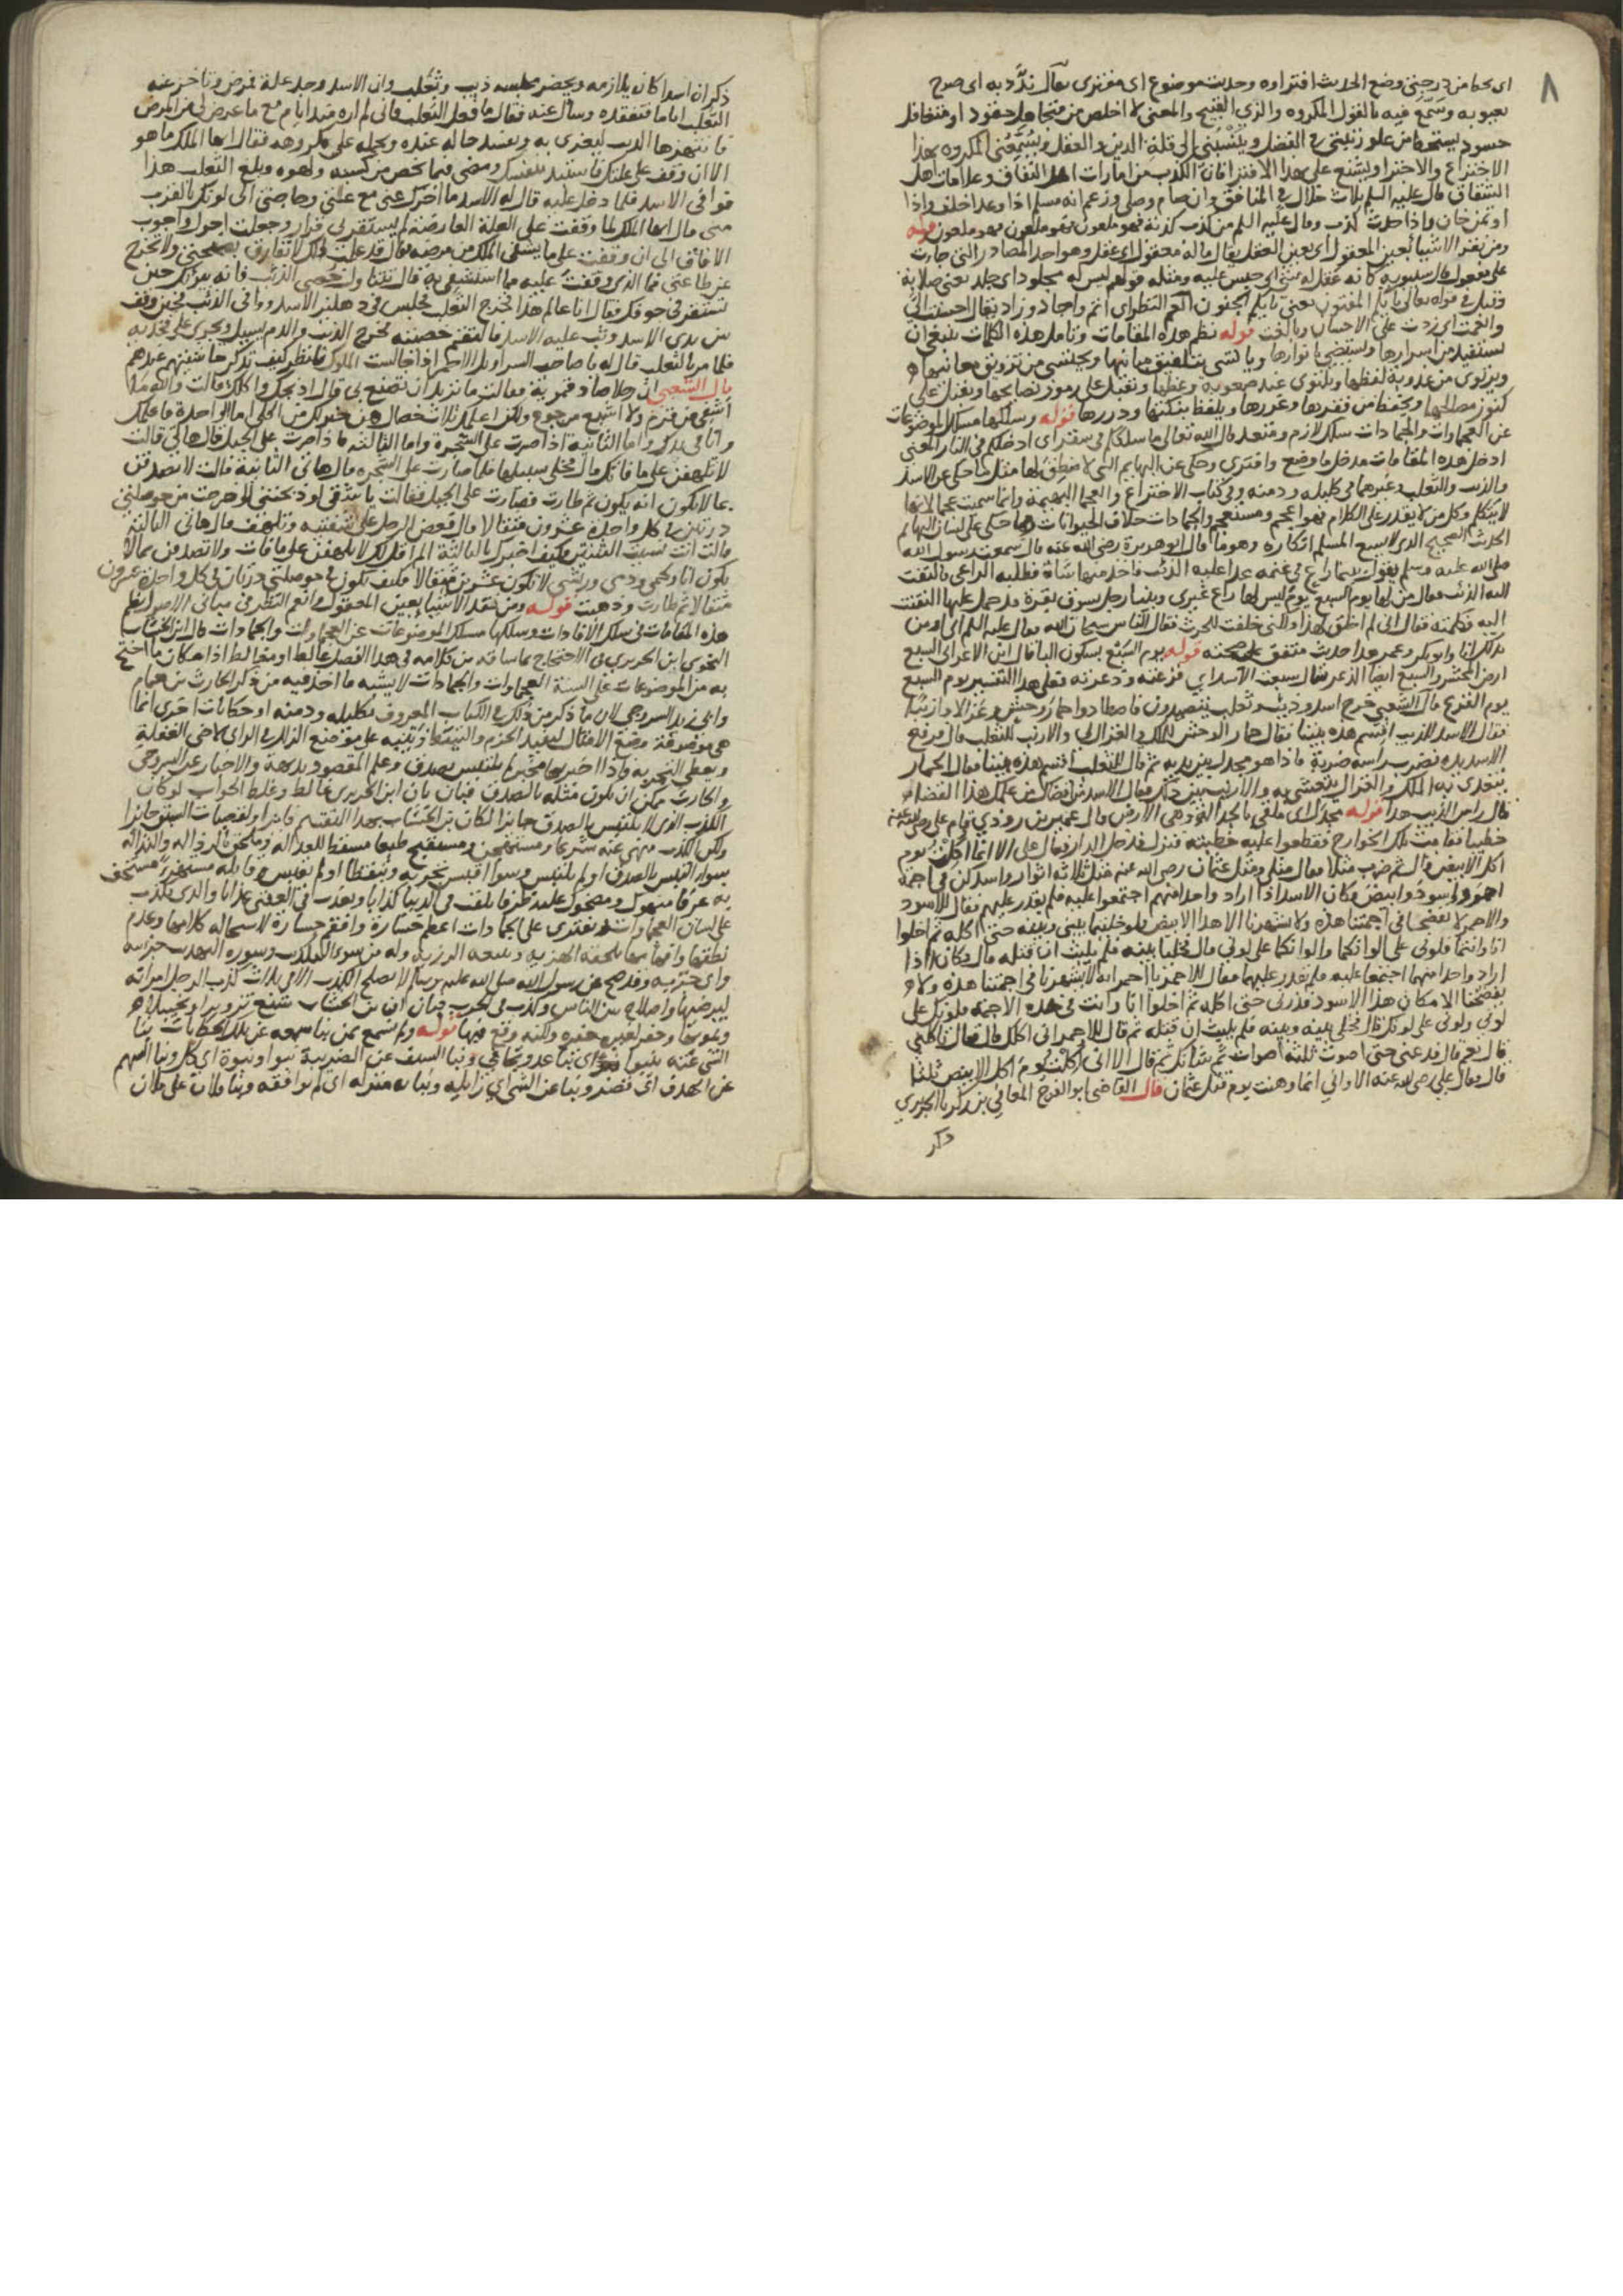 ٨
اى يحط من درجتى وضع الحديث افتراه وحديث موضوع اى مفترى يقال ندّد به اى صرح
بعيوبه وسمّع فيه بالقول المكروه والزى القبيح والمعنى لا اخلص من متجاهل حقود او متغافل
حسود يستحط من علو رتبتى فى الفضل وينسبنى الى قلة الدين والعقل ويسمّعنى المكروه بهذا
الاختراع والاختراء ويشنع على بهذا الافتراء فان الكذب من امارات اهل النفاق وعلامات اهل
الشقاق قال عليه السلم ثلاث خلال فى المنافق وان صام وصلى وزعم انه مسلم اذا وعد اخلف واذا
اوتمن خان واذا حدث كذب وقال عليه السلم من كذب كذبة فهو ملعون فهو ملعون فهو ملعون قوله
ومن نقد الاشيا بعين المعقول اى بعين العقل يقال ماله معقول اى عقل وهو احد المصادر التى جات
على مفعول قال سيبويه كانه عقل له شى اى حبس عليه ومثله قولهم ليس له مجلود اى جلد يعنى صلابة
وقيل فى قوله تعالى بايكم المفتون يعنى بايكم الجنون انعم النظر اى اتم واجاد وزاد يقال احسنت الى
وانعمت اى زدت على الاحسان وبالغت قوله نظم هذه المقامات وتامل هذه الكلمات ينبغى ان
يستفيد من اسرارها ويستضى بانوارها
ويرتوى من عذوبة لفظها ويلتوى عند صعوبة وعظها ويقبل على رموز نصايحها ويغفل على
كنوز مصالحها
عن العجماوات والجمادات سلك لازم ومتعد قال الله تعالى ما سلككم فى سقر اى ادخلكم فى النار المعنى
ادخل هذه المقامات مدخل ما وضع وافترى وحكى عن البهايم التى لا منطق لها مثل ما حكى عن الاسد
والذيب والثعلب وغيرهما فى كليله ودمنه وفى كتاب الاختراع والعجما البهيمة وانما سميت عجما لانها
لا تتكلم وكل من لا يقدر على الكلام فهو اعجم ومستعجم والجمادات خلاف الحيوانات ومما حكى على لسان البهايم
الحديث الصحيح الذى لا يسع المسلم انكاره وهو ما قال ابو هريرة رضى الله عنه قال سمعت رسول الله
صلى الله عليه وسلم يقول بينما راع فى غنمه عدا عليه الذئب فاخذ منها شاة فطلبه الراعى فالتفت
اليه الذئب فقال من لها يوم السبع يوم ليس لها راع غيرى وبينا رجل يسوق بقرة قد حمل عليها التفتت
اليه فكلمته فقالت انى لم اخلق لهذا ولكنى خلقت للحرث فقال الناس سبحان الله فقال عليه السلم انى اومن
بذلك انا وابو بكر وعمر هذا حديث متفق على صحته قوله يوم السبْع بسكون البا قال ابن الاعرابى السبع
ارض المحشر والسبع ايضا الذعر يقال سبعت الاسد اى فزعته وذعرته فعلى هذا التفسير يوم السبع
يوم الفزع قال الشعبى خرج اسد وذيب وثعلب يتصيدون فاصطادوا حمار وحش وغزالا وارنبا
فقال الاسد للذيب اقسم هذه بيننا فقال حمار الوحش للملك والغزال لى والارنب للثعلب قال فرفع
الاسد يده فضرب راسه ضربة فاذا هو مجدل بين يديه ثم قال للثعلب اقسم هذه بيننا فقال الحمار
يتغدى به الملك والغزال يتعشى به والارنب بين ذلك فقال الاسد من علمك هذا القضاء
قال راس الذيب هذا قوله مجدل اى ملقى بالجدالة وهى الارض قال عمير بن رودى قام على رضى الله عنه
خطيبا فقامت تلك الخوارج فقطعوا عليه خطبته فنزل فدخل الدار فقال على الا انما اكلت يوم
اكل الابيض قال ثم ضرب مثلا فقال مثلى ومثل عثمان رضى الله عنه مثل ثلاثة اثوار واسد كن فى اجمة
احمر واسود وابيض وكان الاسد اذا اراد واحدا منهم اجتمعوا عليه فلم يقدر عليهم فقال للاسود
والاحمر لا يفضحنا فى اجمتنا هذه ولا يشهرنا الا هذا الابيض فلو خليتما بينى وبينه حتى اكله ثم اخلوا
انا وانتما فلونى على الوانكما والوانكما على لونى قال فخليا بينه فلم يلبث ان قتله قال وكان اذا
اراد واحدا منهما اجتمعا عليه فلم يقدر عليهما فقال للاحمر يا احمر انه لا يشهرنا فى اجمتنا هذه ولا
يفضحنا الا مكان هذا الاسود فذرنى حتى اكله ثم اخلوا انا وانت فى هذه الاجمة فلونك على
لونى ولونى على لونك قال فخلى بينه وبينه فلم يلبث ان قتله ثم قال للاحمر انى اكلك قال فقال تاكلنى
قال نعم قال فدعنى حتى اصوت ثلثة اصوات ثم شانك ثم قال الا انى اكلت يوم اكل الابيض ثلثا
قال وقال على رضى الله عنه الا وانى انما وهنت يوم قتل عثمان قال القاضى ابو الفرج المعافى بن زكريا الجريرى
ذكر
ذكر ان اسدا كان يلازمه ويحضر مجلسه ذيب وثعلب وان الاسد وجد علة فمرض وتاخر عنه
الثعلب اياما فتفقده وسال عنه فقال ما فعل الثعلب فانى لم اره منذ ايام مع ما عرض لى من المرض
فانتهزها الذيب ليغرى به ويفسد حاله عنده ويحمله على مكروهه فقال ايها الملك ما هو
الا ان وقف على علتك فاستبد بنفسك ومضى فيما يخص من كسبه ولهوه وبلغ الثعلب هذا
فوافى الاسد فلما دخل عليه قال له الاسد ما اخرك عنى مع علتى وحاجتى الى كونك بالقرب
منى قال ايها الملك لما وقفت على العلة العارضة لم يستقر لى قرار وجعلت اجول واجوب
الافاق الى ان وقفت على ما يشفى الملك من مرضه فقال قد علمت انك لا تفارق نصيحتى ولا تخرج
عن طاعتى فما الذى وقفت عليه مما استشفى به قال تتناول خصى الذيب فانه يبريك حين
تستقر فى جوفك فقال انا عالم هذا فخرج الثعلب فجلس فى دهليز الاسد ووافى الذئب فحين وقف
بين يدى الاسد وثب عليه الاسد فالتقم خصيته فخرج الذيب والدم يسيل ويجرى على فخذيه
فلما مر بالثعلب قال له يا صاحب السراويل الاحمر اذا جالست الملوك فانظر كيف تذكر حاشيتهم عندهم
قال الشعبى ان رجلا صاد قمرية فقالت ما تريد ان تصنع بى قال اذبحك واكلك قالت والله ما
اشفى من قرم ولا اشبع من جوع ولكن اعلمك ثلاث خصال هن خير لك من اكلى اما الواحدة فاعلمك
وانا فى يدك واما الثانية اذا صرت على الشجرة واما الثالثة فاذا صرت على الجبل قال هاتى قالت
لا تلهفن على ما فاتك قال فخلى سبيلها فلما صارت على الشجرة قال هاتى الثانية قالت لا تصدقن
بما لا يكون انه يكون ثم طارت فصارت على الجبل فقالت يا شقى لو ذبحتنى لاخرجت من حوصلتى
درتين فى كل واحدة عشرون مثقالا قال فعض الرجل على شفتيه وتلهف قال هاتى الثالثة
قالت انت نسيت الثنتين فكيف اخبرك بالثالثة الم اقل لك لا تلهفن على ما فات ولا تصدقن بما لا
يكون انا ولحمى ودمى وريشى لا يكون عشرين مثقالا فكيف يكون فى حوصلتى درتان فى كل واحدة عشرون
مثقالا ثم طارت وذهبت قوله ومن نقد الاشيا بعين المعقول وانعم النظر فى مبانى الاصول نظم
هذه المقامات فى سلك الافادات وسلكها مسلك الموضوعات عن العجماوات والجمادات قال ابن الخشاب
النحوى ابن الحريرى فى الاحتجاج بما ساقه من كلامه فى هذا الفصل غالط او مغالط اذا مكان ما احتج
به من الموضوعات على السنة العجماوات والجمادات لا يشبه ما اخذ فيه من ذكر الحارث بن همام
وابى زيد السروجى لان ما ذكر من ذلك فى الكتاب المعروف بكليله ودمنه او حكايات اخرى انما
هى موضوعة وضع الامثال لتفيد الحزم والتيقظ وتنبيه على موضع الزلل فى الراى لاخى الغفلة
ويعطى التجربة فاذا اخبر بها مخبر لم يلتبس بصدق وعلم المقصود بديهة والاخبار عن السروجى
والحارث يمكن ان يكون مثله بالصدق فبان بان ابن الحريرى غالط وغلط الجواب لو كان
الكذب الذى لا يلتبس بالصدق جايزا لكان ابن الخشاب بهذا التقسيم فايزا ولقصبات السبق حايزا
ولكن الكذب منهى عنه شرعا ومستهجن ومستقبح طبعا مسقط للعدالة وملحق بالرذالة والنذالة
سوا التبس بالصدق او لم يلتبس وسوا اقتبس تجربة وتيقظا او لم يقتبس وقايله مستهزى مستخف
به عرفا منهوك ومضحوك عليه ظرفا يلقب فى الدنيا كذابا ويعذب فى العقبى عذابا والذى يكذب
على لسان العجماوات ويفترى على الجمادات اعظم خسارة وافقم جسارة لاستحالة كلامها وعدم
نطقها
واى خزية وقد صح عن رسول الله صلى الله عليه وسلم لا يصلح الكذب الا فى ثلاث كذب الرجل امراته
ليرضيها واصلاح بين الناس وكذب فى الحرب فبان ان ابن الخشاب شنع تزويرا وتخييلا
وتمويها وحفر لغيره حفره ولكنه وقع فيها قوله ولم يسمع بمن نبا سمعه عن تلك الحكايات نبا
الشى عنه ينبوا نبوا اى تجافى وتباعد ونبا السيف عن الضريبة نبوا ونبوة اى كل ونبا السهم
عن الهدف اى قصر ونبا عن الشى اى زايله ونبا به منزله اى لم يوافقه ونبا فلان على فلان